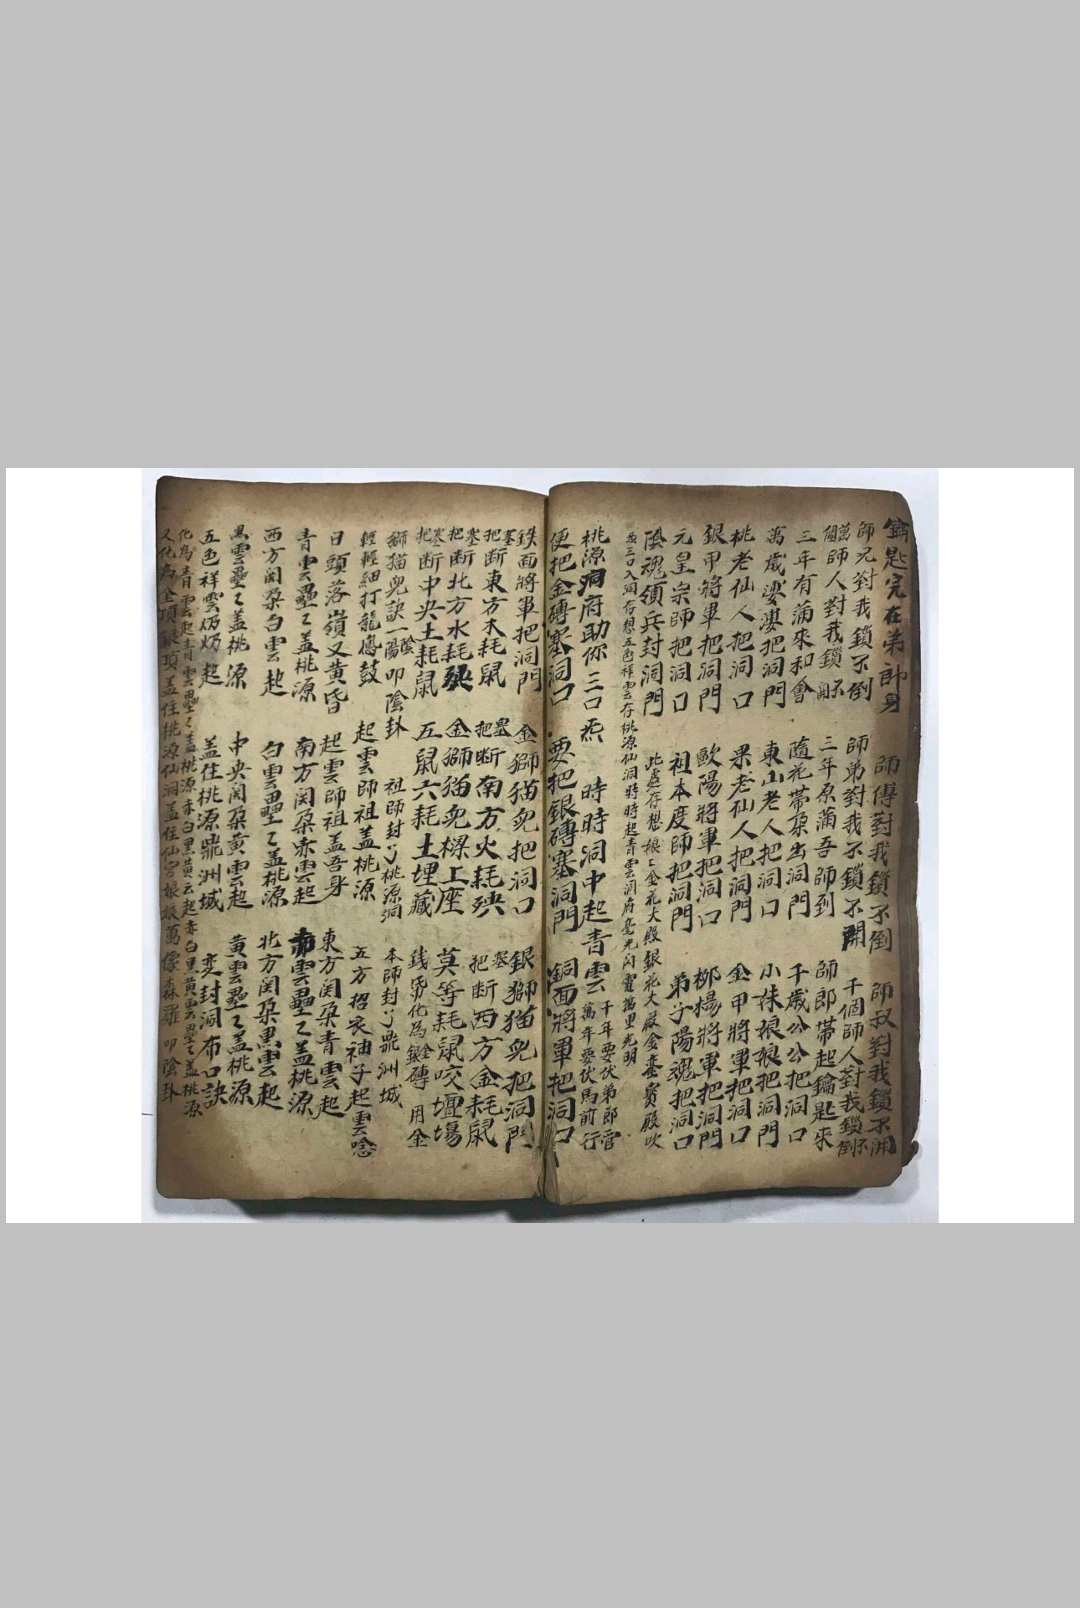 鑰匙完在弟師身 師傅對我鎖不倒 師叔對我鎖不開
師兄對我鎖不倒 師弟對我不鎖不開 千個師人對我鎖不倒
萬個師人對我鎖不開 三年原滿吾師到 師郎帶起鑰匙來
三年有滿來和會 隨花帶朶出洞門 千歲公公把洞口
萬歲婆婆把洞門 東山老人把洞口 小妹娘娘把洞門
桃老仙人把洞口 果老仙人把洞門 金甲將軍把洞口
銀甲將軍把洞門 歐陽將軍把洞口 柳楊將軍把洞門
元皇宗師把洞口 祖本度師把洞門 弟子陽魂把洞口
陰魂領兵封洞門 此處存想 金花大殿銀花大殿金臺寶殿吹
三口入洞存想五色祥雲存桃源仙洞時時起青雲洞府毫光閃電萬里光明
桃源洞府助你三口炁 時時洞中起青雲 千年要伏弟郎營 萬年要伏馬前行
便把金磚塞洞口 要把銀磚塞洞門 銅面將軍把洞口
鉄面將軍把洞門 金獅猫兒把洞口 銀獅猫兒把洞門
塞把断東方木耗鼠 塞把断南方火耗殃 塞把断西方金耗鼠
塞把断北方水耗殃 金獅猫兒樑上座 莫等耗鼠咬壇場
塞把断中央土耗鼠 五鼠六耗土埋藏 錢財化為金銀磚 用金
獅猫兒訣一陰陽叩陰卦 祖師封了桃源洞 本師封了鼎洲城
輕輕細打龍鳳鼓 起雲師祖蓋桃源 五方招衣袖子起雲唸
日頭落嶺又黃昏 起雲師祖蓋吾身 東方闵朶青雲起
青雲壘壘蓋桃源 南方闵朶赤雲起 赤雲壘壘蓋桃源
西方闵朶白雲起 白雲壘壘蓋桃源 北方闵朶黑雲起
黑雲壘壘蓋桃源 中央闵朶黃雲起 黃雲壘壘蓋桃源
五色祥雲炳炳起 蓋住桃源鼎洲城 変封洞布口訣
化為青雲起青雲壘壘蓋桃源赤白黑黃雲起赤白黑黃雲壘壘蓋桃源
又化為金頂銀頂蓋住桃源仙洞蓋住仙宮 萬像森羅 叩陰卦